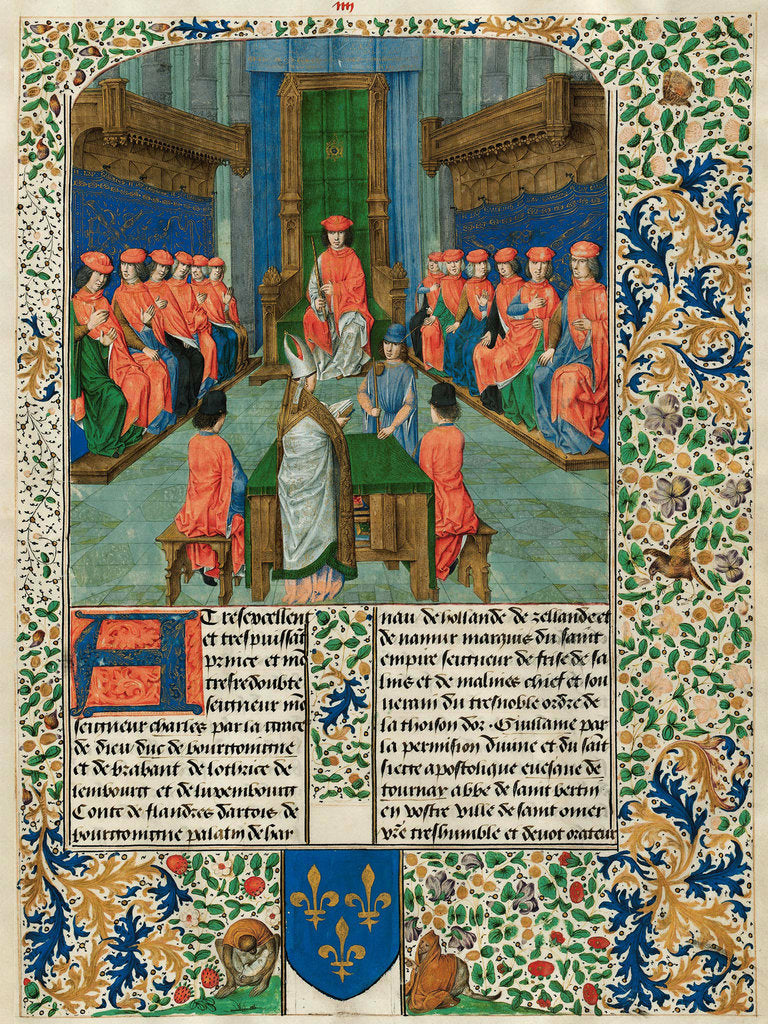 iiii
A Tresexcellent
et trespuissāt
prince et mō
tresredoubte
seigneur mō
seigneur charles par la grace
de dieu duc de bourgoingne
et de brabant de lothric de
lembourg et de luxembourg
Conte de flandres dartois de
bourgoingne palatin de hay
nau de hollande de zellande et
de namur marquis du saint
empire seigneur de frise de sa
lins et de malines chief et sou
uerain du tresnoble ordre de
la thoison dor . Guillame par
la permision diuine et du saīt
siege apostolique euesque de
tournay abbe de saint bertin
en vostre ville de saint omer
vr̄e treshumble et deuot orateur